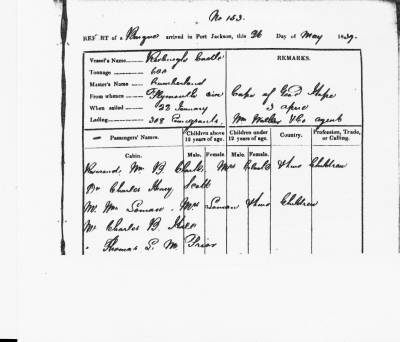 No 153.
REPORT of a Barque arrived in Port Jackson, this 26 Day of May 1839.
Vessel's Name Roxburgh Castle
REMARKS.
Tonnage 600
Master's Name Cumberland
From whence Plymouth via Cape of Good Hope
When sailed 22 January 3 April
Lading 308 Emigrants. Wm Walker & Co agent
Passengers' Names. Children above 12 years of age. Children under 12 years of age. Country. Profession, Trade, or Calling.
Cabin. Male. Female. Male. Female.
Reverend Wm B. Clarke, Mrs Clarke & two Children
Dr Charles Henry Scott
Mr Wm Lomax. Mrs Lomax & two Children
Mr Charles B.
" Thomas L. M. Prior